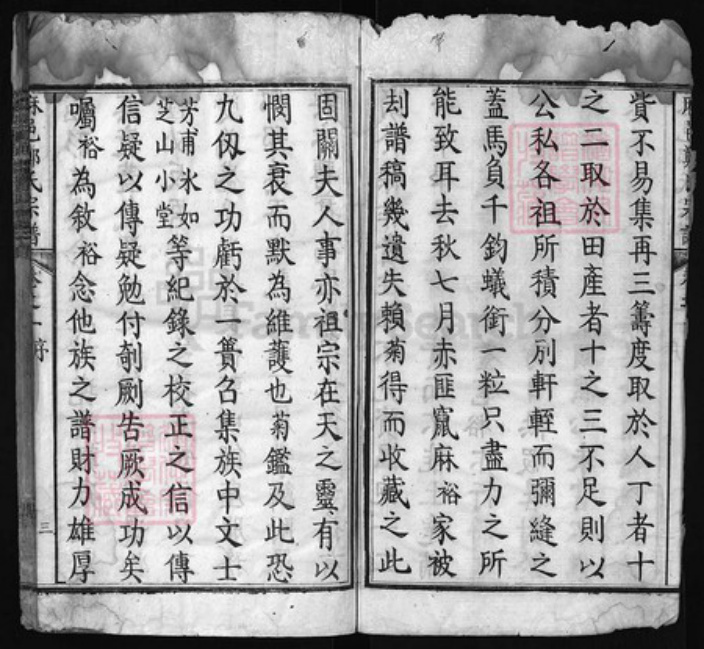 貲不易集再三籌度取於人丁者十
之二取於田產者十之三不足則以
公私各祖所積分別軒輊而彌縫之
蓋馬負千鈞蟻銜一粒只盡力之所
能致耳去秋七月赤匪竄麻裕家被
刦譜稿幾遺失賴菊得而收藏之此
固關夫人事亦祖宗在天之靈有以
憫其衰而默為維護也菊鑑及此恐
九仭之功虧於一簣召集族中文士
芳甫氷如
芝山小堂
等紀錄之校正之信以傳
信疑以傳疑勉付剞劂告厥成功矣
囑裕為敘裕念他族之譜財力雄厚
三
FamilySearch